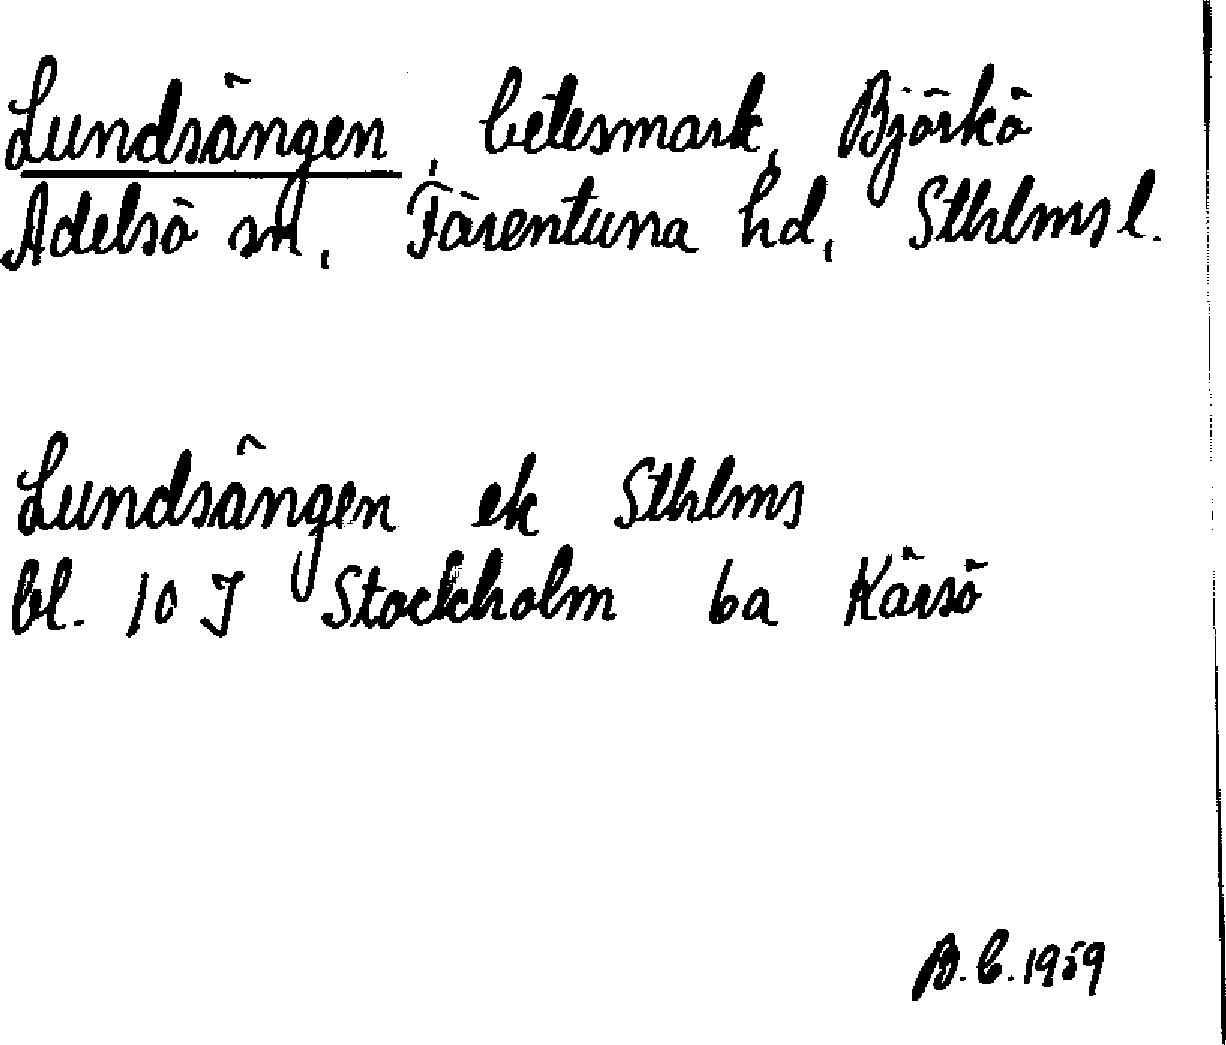 Lundsängen, betesmark, Björkö
Adelsö sn, Färentuna hd, Sthlms l.
Lundsängen ek Sthlms
bl. 10 J Stockholm 6a Kärsö
B.C. 1959